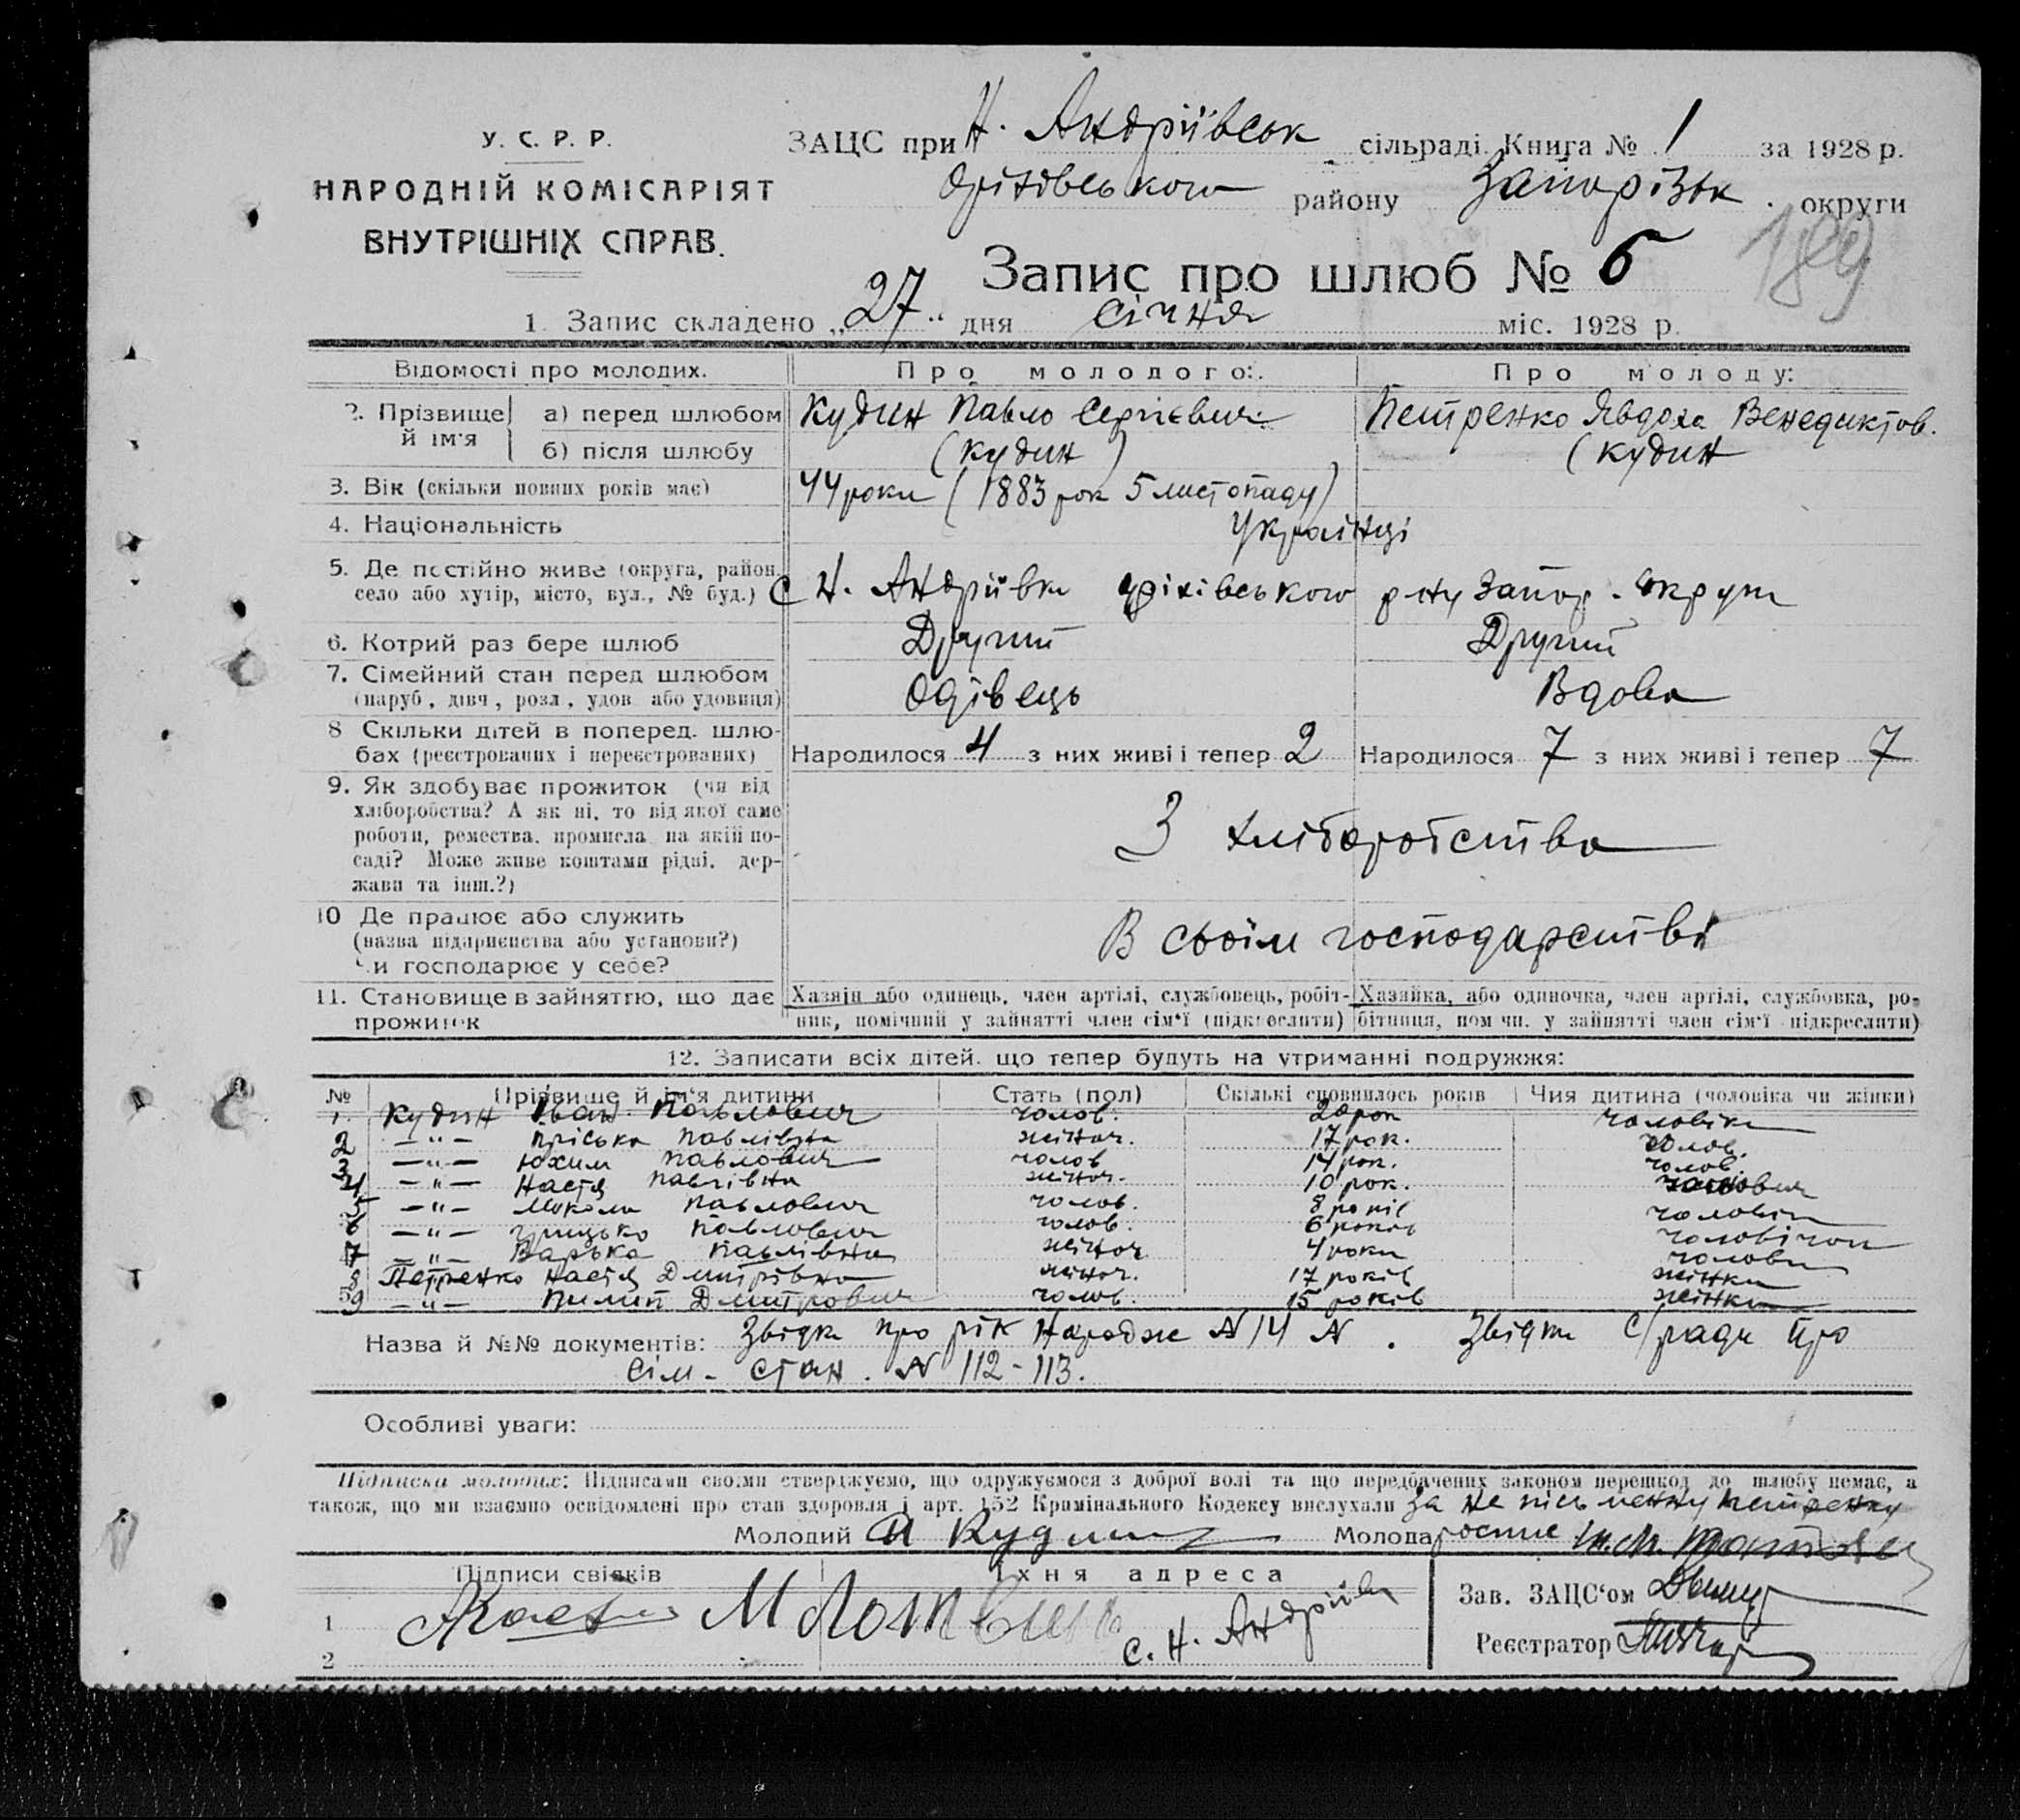 У. С. Р. Р.
НАРОДНІЙ КОМІСАРІЯТ
ВНУТРІШНІХ СПРАВ.
ЗАЦС при Н. Андріївськ сільраді. Книга № 1 за 1928 р.
Оріхівського району Запорізьк. округи
189
Запис про шлюб № 6
1. Запис складено „27“ дня січня міс. 1928 р.
Відомості про молодих. Про молодого: Про молоду:
2. Прізвище й ім'я а) перед шлюбом Кудин Павло Сергієвич Петренко Явдоха Венедиктов.
б) після шлюбу (Кудин) (Кудин
3. Вік (скільки повних років має) 44 роки (1883 рок 5 листопаду)
4. Національність Українці
5. Де постійно живе (округа, район, село або хутір, місто, вул., № буд.) С Н. Андріївки Оріхівського р-ну Запор. Округи
6. Котрий раз бере шлюб Другий Другий
7. Сімейний стан перед шлюбом (паруб., дівч., розл., удов. або удовиця) Одівець Вдова
8 Скільки дітей в поперед. шлюбах (реєстрованих і нереєстрованих) Народилося 4 з них живі і тепер 2 Народилося 7 з них живі і тепер 7
9. Як здобуває прожиток (чи від хліборобства? А як ні, то від якої саме роботи, ремества, промисла, на якій посаді? Може живе коштами рідні, держави та інш.?) З хліборобства
10 Де працює або служить (назва підприємства або установи?) Чи господарює у себе? В своім господарстві
11. Становище в зайняттю, що дає прожиток Хазяїн або одинець, член артілі, службовець, робітник, помічний у зайнятті член сім'ї (підкреслити) Хазяйка, або одиночка, член артілі, службовка, робітниця, пом чн. у зайнятті член сім'ї підкреслити)
12. Записати всіх дітей, що тепер будуть на утриманні подружжя:
№ Прізвище й ім'я дитини Стать (пол) Скількі сповнилось років Чия дитина (чоловіка чи жінки)
1. Кудин Іван Павлович чолов. 20 рок чоловіка
2 —"— Пріська Павлівна жіноч. 17 рок. чолов.
3 —"— Юхим Павлович чолов 14 рок. чолов.
4 —"— Настя Павлівна жіноч. 10 рок.
5 —"— Микола Павлович чолов. 8 років чоловік
6 —"— Грицько Павлович чолов. 6 років
7 —"— Варька Павлівна жіноч 4 роки чолові
8 Петренко Настя Дмитрівна жіноч. 17 років жінки
9 —"— Пилип Дмитрович чолов. 15 років жінки
Назва й №№ документів: Звідка про рік народж N 14 N . Звідки с/ради про
сім- стан. N 112-113.
Особливі уваги:
Підписка молодих: Підписами своїми стверджуємо, що одружуємося з доброї волі та що передбачених законом перешкод до шлюбу немає, а
також, що ми взаємно освідомлені про стан здоров'я і арт. 152 Кримінального Кодексу вислухали За не письменну Петренку
Молодий П Кудин Молода
Підписи свідків Їхня адреса
1 М Литвин с. Н. Андріївк
2
Зав. ЗАЦС'ом
Реєстратор